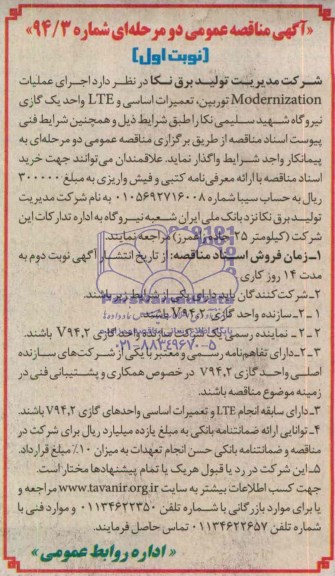 «آگهی مناقصه عمومی دو مرحله‌ای شماره ۹۴/۳»
[نوبت اول]
شرکت مدیریت تولید برق نکا در نظر دارد اجرای عملیات
Modernization توربین، تعمیرات اساسی و LTE واحد یک گازی
نیروگاه شهید سلیمی نکا را طبق شرایط ذیل و همچنین شرایط فنی
پیوست اسناد مناقصه از طریق برگزاری مناقصه عمومی دو مرحله‌ای به
پیمانکار واجد شرایط واگذار نماید. علاقمندان می‌توانند جهت خرید
اسناد مناقصه با ارائه معرفی‌نامه کتبی و فیش واریزی به مبلغ ۳۰۰۰۰۰
ریال به حساب سیبا شماره ۰۱۰۵۶۹۲۷۱۶۰۰۸ به نام شرکت مدیریت
تولید برق نکا نزد بانک ملی ایران شعبه نیروگاه به اداره تدارکات این
شرکت (کیلومتر ۲۵ جاده زاغمرز) مراجعه نمایند.
۱ـ زمان فروش اسناد مناقصه: از تاریخ انتشار آگهی نوبت دوم به
مدت ۱۴ روز کاری
۲ـ شرکت‌کنندگان باید دارای یکی از شرایط زیر باشند.
۲ـ۱ـ سازنده واحد گازی V۹۴.۲ باشند.
۲ـ۲ـ نماینده رسمی یک شرکت سازنده واحد گازی V۹۴.۲ باشند.
۲ـ۳ـ دارای تفاهم‌نامه رسمی و معتبر با یکی از شرکت‌های سازنده
اصلی واحد گازی V۹۴.۲ در خصوص همکاری و پشتیبانی فنی در
زمینه موضوع مناقصه باشند.
۳ـ دارای سابقه انجام LTE و تعمیرات اساسی واحدهای گازی V۹۴.۲ باشند.
۴ـ توانایی ارائه ضمانتنامه بانکی به مبلغ یازده میلیارد ریال برای شرکت در
مناقصه و ضمانتنامه بانکی حسن انجام تعهدات به میزان ۱۰٪ مبلغ قرارداد.
۵ـ این شرکت در رد یا قبول هر یک یا تمام پیشنهادها مختار است.
جهت کسب اطلاعات بیشتر به سایت www.tavanir.org.ir مراجعه و
یا برای موارد بازرگانی با شماره تلفن ۰۱۱۳۴۶۲۲۳۵۰ و موارد فنی با
شماره تلفن ۰۱۱۳۴۶۲۲۶۵۷ تماس حاصل فرمایند.
«اداره روابط عمومی»
۰۲۱-۸۸۳۴۹۶۷۰-۵